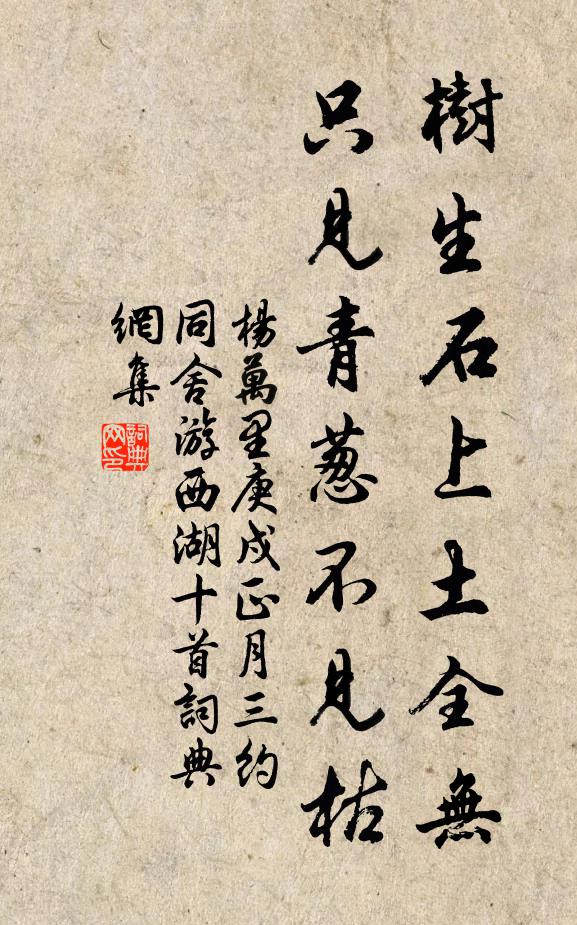 樹生石上土全無
只見青蔥不見枯
楊萬里庚戌正月三約
同舍游西湖十首詞典
網集
詞典
网印